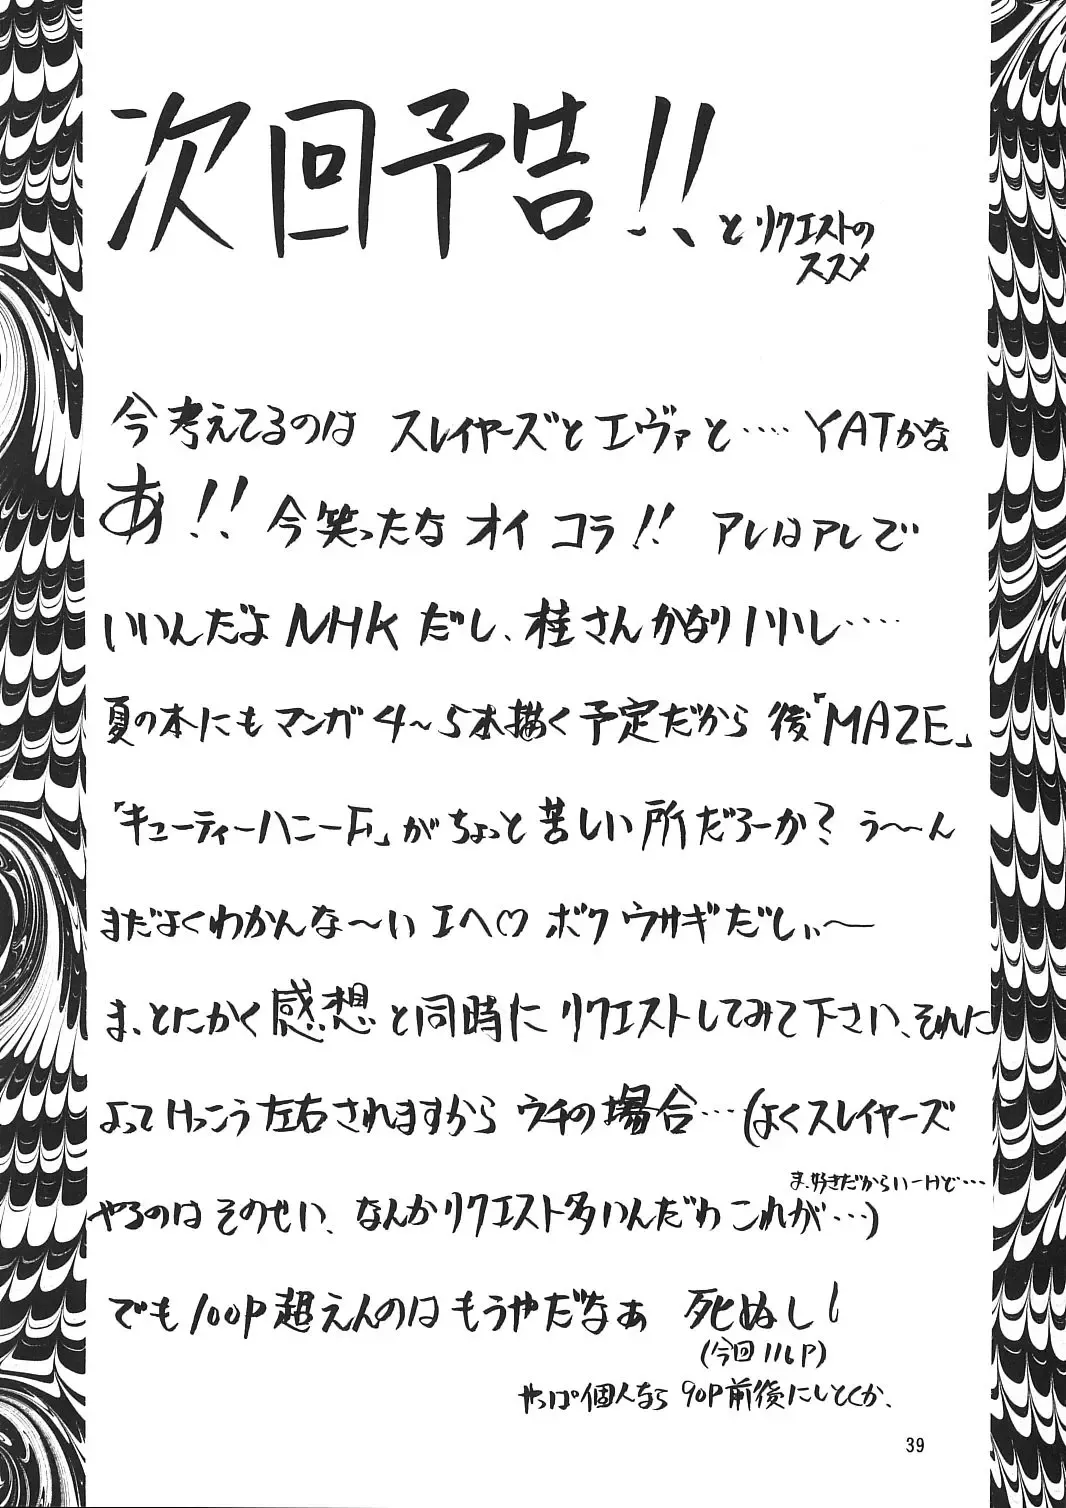 次回予告!!
とリクエストの
ススメ
今考えてるのは スレイヤーズとエヴァと‥‥ YATかな
あ!! 今笑ったな オイ コラ!! アレはアレで
いいんだよ NHKだし、桂さんかなりいいし‥‥
夏の本にもマンガ4〜5本描く予定だから 後「MAZE」
「キューティーハニーF」がちょっと苦しい所だろーか? う〜〜ん
まだよくわかんな〜い エヘ♡ ボク ウサギだしぃ〜
ま、とにかく感想と同時にリクエストしてみて下さい、それに
よってけっこう左右されますから ウチの場合‥‥(よくスレイヤーズ
ま、好きだからいーけど‥‥
やるのはそのせい、なんかリクエスト多いんだわ これが‥‥)
でも100P超えんのはもうやだなぁ 死ぬし!
(今回116P)
やっぱ個人なら 90P前後にしとくか、
39